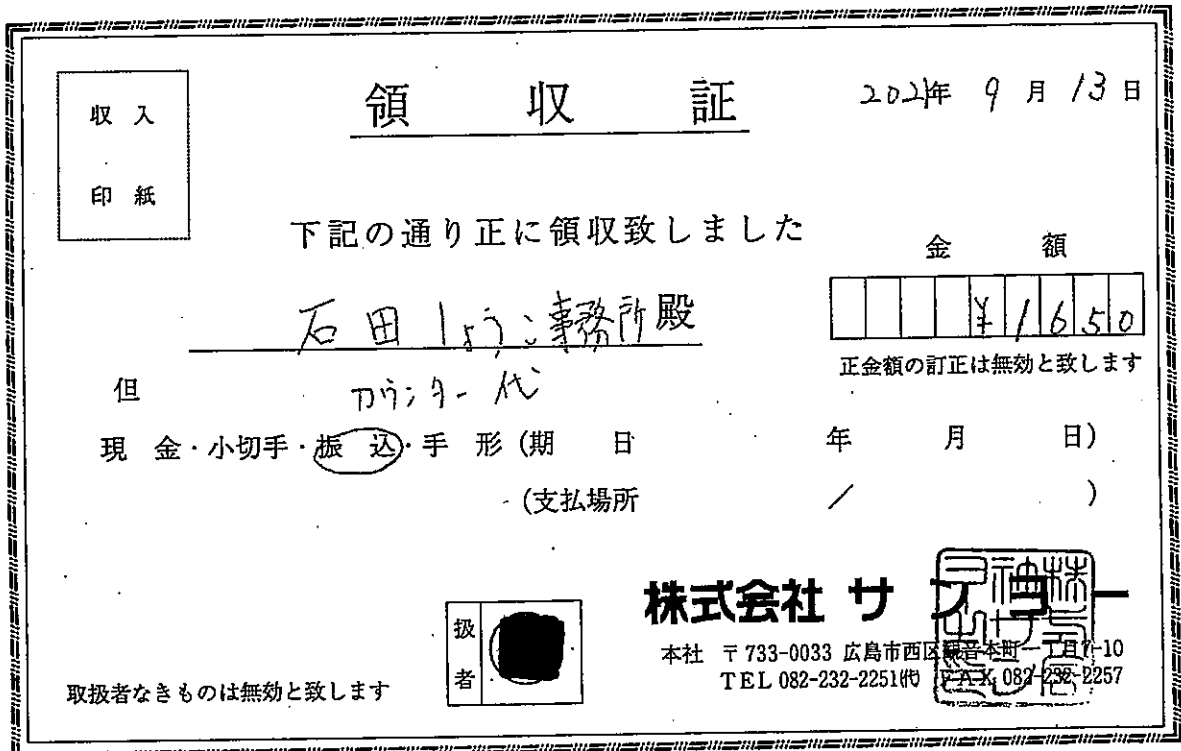 収入
印紙
領収証
2021年 9月 13日
下記の通り正に領収致しました
金額
石田しょうこ事務所殿
¥1650
正金額の訂正は無効と致します
但 カウンター代
現金・小切手・振込・手形(期日 年 月 日)
(支払場所 / )
扱者
株式会社 サンヨー
本社 〒733-0033 広島市西区観音本町一丁目7-10
TEL 082-232-2251代 FAX 082-232-2257
取扱者なきものは無効と致します